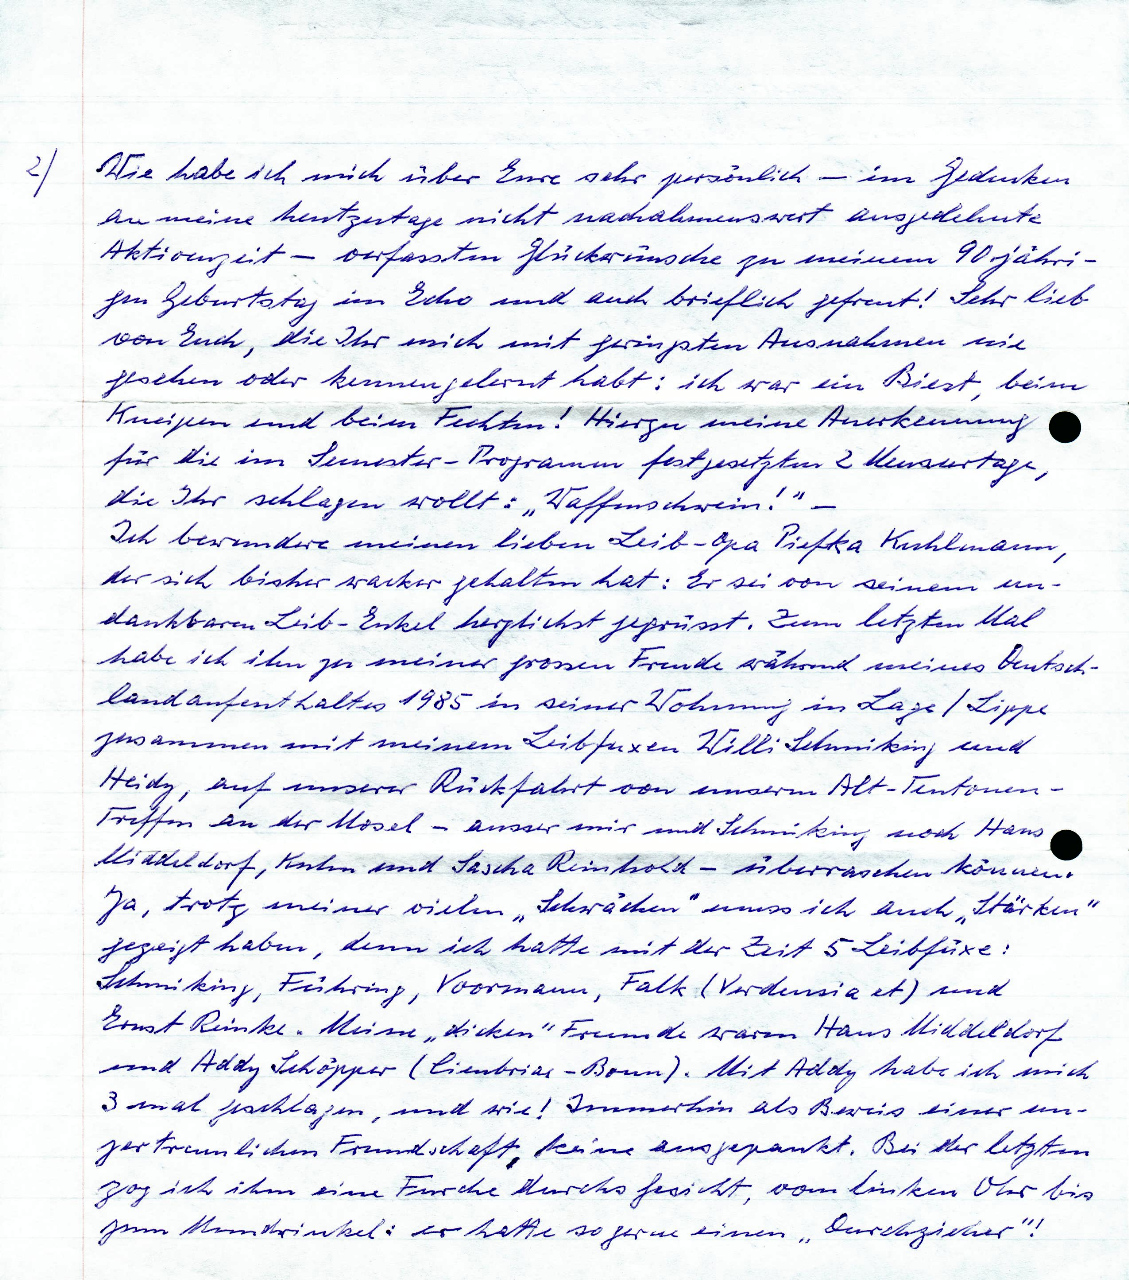 2/ Wie habe ich mich über Eure sehr persönlich – im Gedenken
an meine heutzutage nicht nachahmenswert ausgedehnte
Aktivenzeit – verfassten Glückwünsche zu meinem 90 jähri-
gen Geburtstag im Echo und auch brieflich gefreut! Sehr lieb
von Euch, die Ihr mich mit geringsten Ausnahmen nie
gesehen oder kennengelernt habt: ich war ein Biest, beim
Kneipen und beim Fechten! Hierzu meine Anerkennung
für die im Semester-Programm festgesetzten 2 Mensurtage,
die Ihr schlagen wollt: „Waffenschwein!" –
Ich bewundere meinen lieben Leib-Opa Piefka Kuhlmann,
der sich bisher wacker gehalten hat: Er sei von seinem un-
dankbaren Leib-Enkel herzlichst gegrüsst. Zum letzten Mal
habe ich ihn zu meiner grossen Freude während meines Deutsch-
landaufenthaltes 1985 in seiner Wohnung in Lage / Lippe
zusammen mit meinem Leibfuxen Willi Schmiking und
Heidy, auf unserer Rückfahrt von unserm Alt-Teutonen-
Treffen an der Mosel – ausser mir und Schmiking noch Hans
Middeldorf, Kuhn und Sascha Reinhold – überraschen können.
Ja, trotz meiner vielen „Schwächen" muss ich auch „Stärken"
gezeigt haben, denn ich hatte mit der Zeit 5 Leibfüxe:
Schmiking, Führing, Voormann, Falk (Verdensia et) und
Ernst Reinke. Meine „dicken" Freunde waren Hans Middeldorf
und Addy Schöpper (Cimbriae-Bonn). Mit Addy habe ich mich
3 mal geschlagen, und wie! Immerhin als Beweis einer un-
zertrennlichen Freundschaft, keine ausgepaukt. Bei der letzten
zog ich ihm eine Furche durchs Gesicht, vom linken Ohr bis
zum Mundwinkel: er hatte so gerne einen „Durchzieher"!